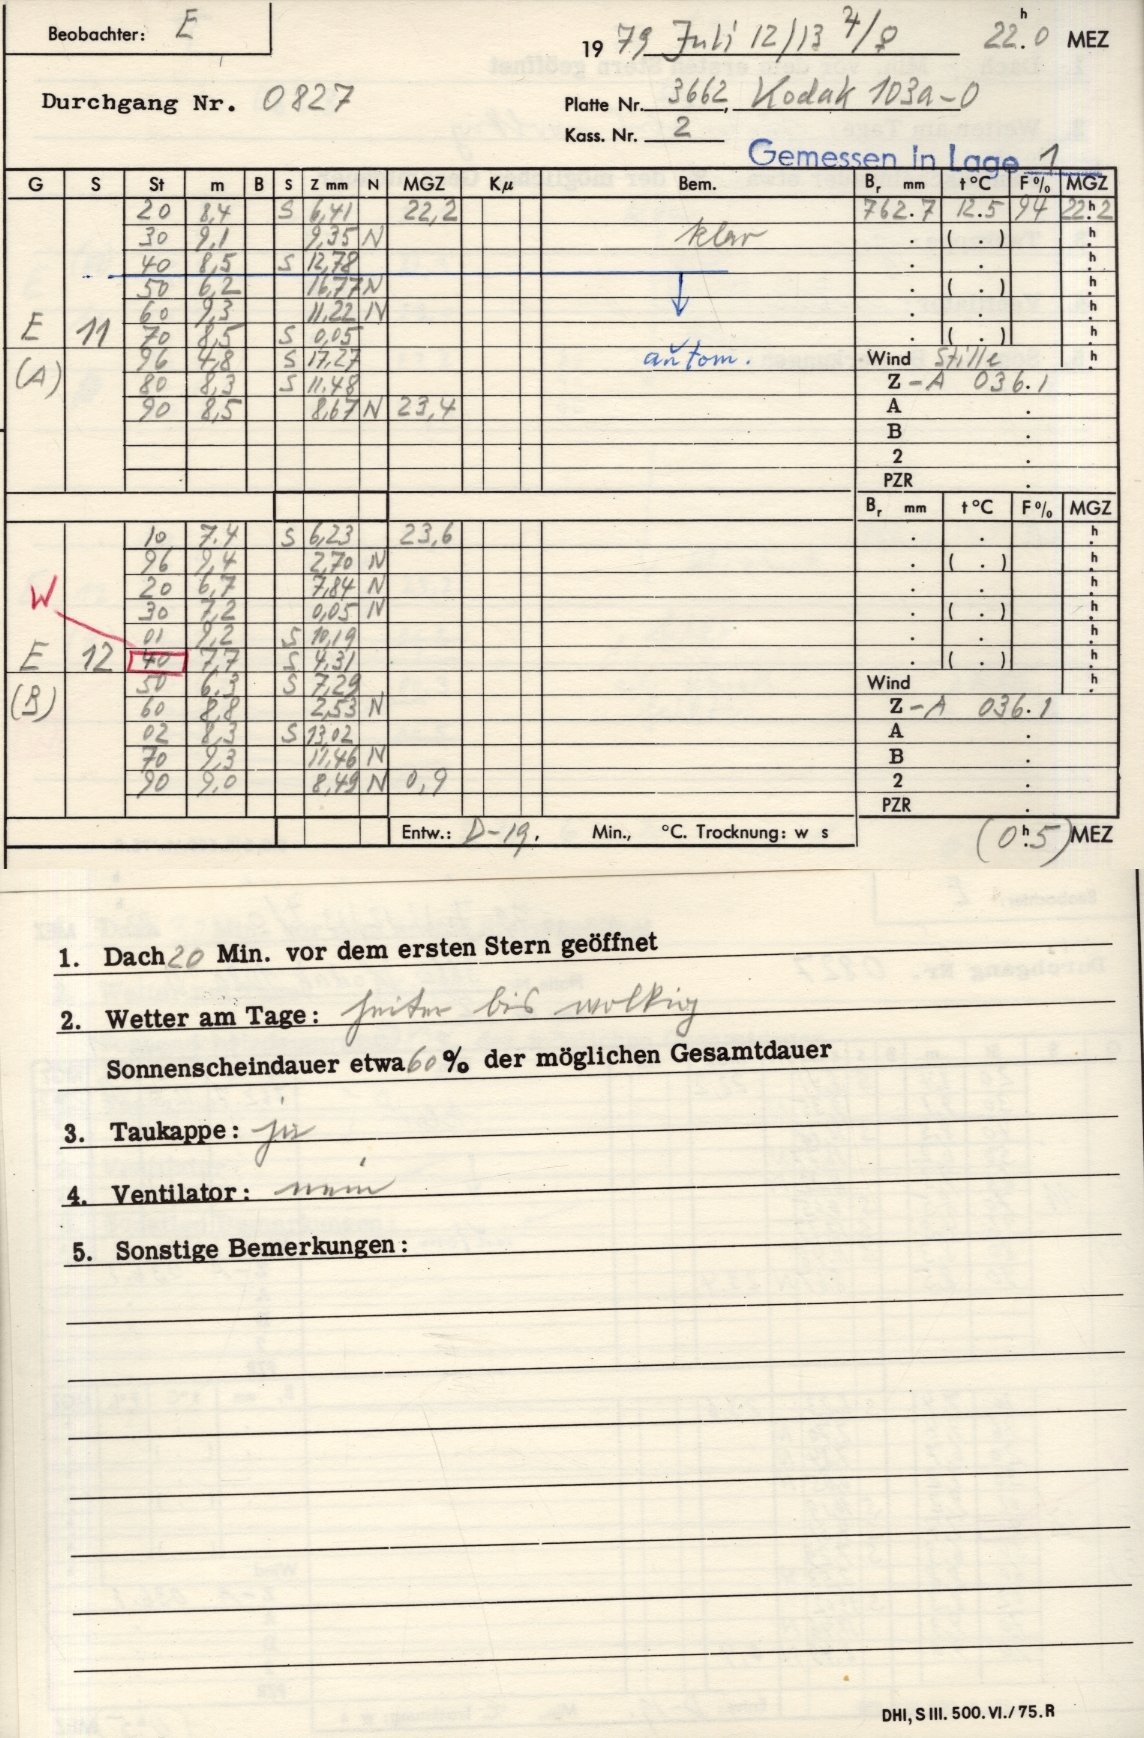 Beobachter: E
1979 Juli 12/13 ♃/♀ 22.ʰ0 MEZ
Durchgang Nr. 0827
Platte Nr. 3662, Kodak 103a-O
Kass. Nr. 2
Gemessen in Lage 1
G S St m B S Z mm N MGZ Kμ Bem. Bᵣ mm t°C F% MGZ
20 8,4 S 6,41 22,2 762.7 12.5 94 22ʰ.2
30 9,1 9,35 N klar . ( . ) h
40 8,5 S 12,78 . . h
50 6,2 16,77 N . ( . ) h
60 9,3 11,22 N . . h
E 11 70 8,5 S 0,05 . ( . ) h
(A) 96 4,8 S 17,27 autom. Wind Stille h
80 8,3 S 11.48 Z -A 036.1
90 8,5 8,67 N 23,4 A .
B .
2 .
PZR .
Bᵣ mm t°C F% MGZ
10 7.4 S 6,23 23,6 . . h
96 9,4 2,70 N . ( . ) h
20 6,7 7,84 N . . h
W 30 7,2 0,05 N . ( . ) h
01 9,2 S 10,19 . . h
E 12 40 7,7 S 4,31 . ( . ) h
(B) 50 6,3 S 7,29 Wind h
60 8,8 2,53 N Z -A 036.1
02 8,3 S 13,02 A .
70 9,3 11,46 N B .
90 9,0 8,49 N 0,9 2 .
PZR .
Entw.: D-19, Min., °C. Trocknung: w s (0ʰ.5) MEZ
1. Dach 20 Min. vor dem ersten Stern geöffnet
2. Wetter am Tage: heiter bis wolkig
Sonnenscheindauer etwa 60 % der möglichen Gesamtdauer
3. Taukappe: ja
4. Ventilator: nein
5. Sonstige Bemerkungen:
DHI, S III. 500. VI./75. R